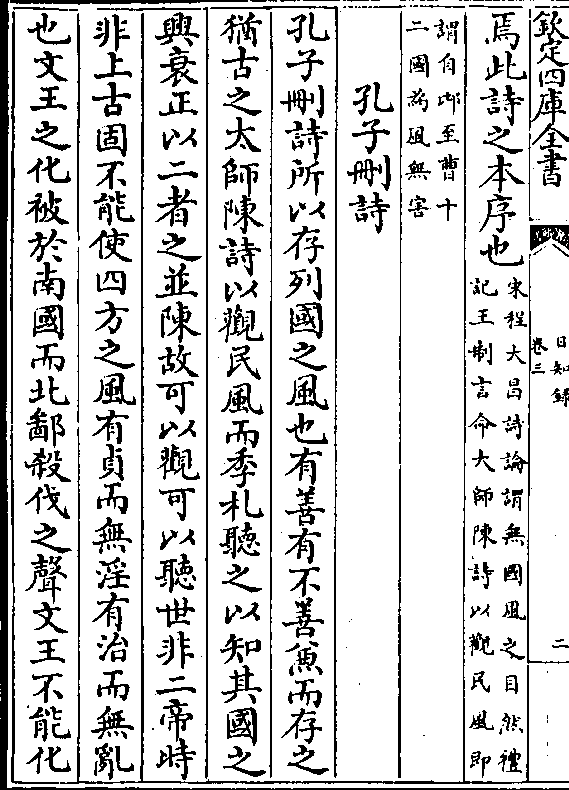 欽定四庫全書
日知錄
卷三
二
焉此詩之本序也
宋程大昌詩論謂無國風之目然禮
記王制言命大師陳詩以觀民風即
謂自邶至曹十
二國為風無害
孔子刪詩
孔子刪詩所以存列國之風也有善有不善兼而存之
猶古之太師陳詩以觀民風而季札聽之以知其國之
興衰正以二者之並陳故可以觀可以聽世非二帝時
非上古固不能使四方之風有貞而無淫有治而無亂
也文王之化被於南國而北鄙殺伐之聲文王不能化